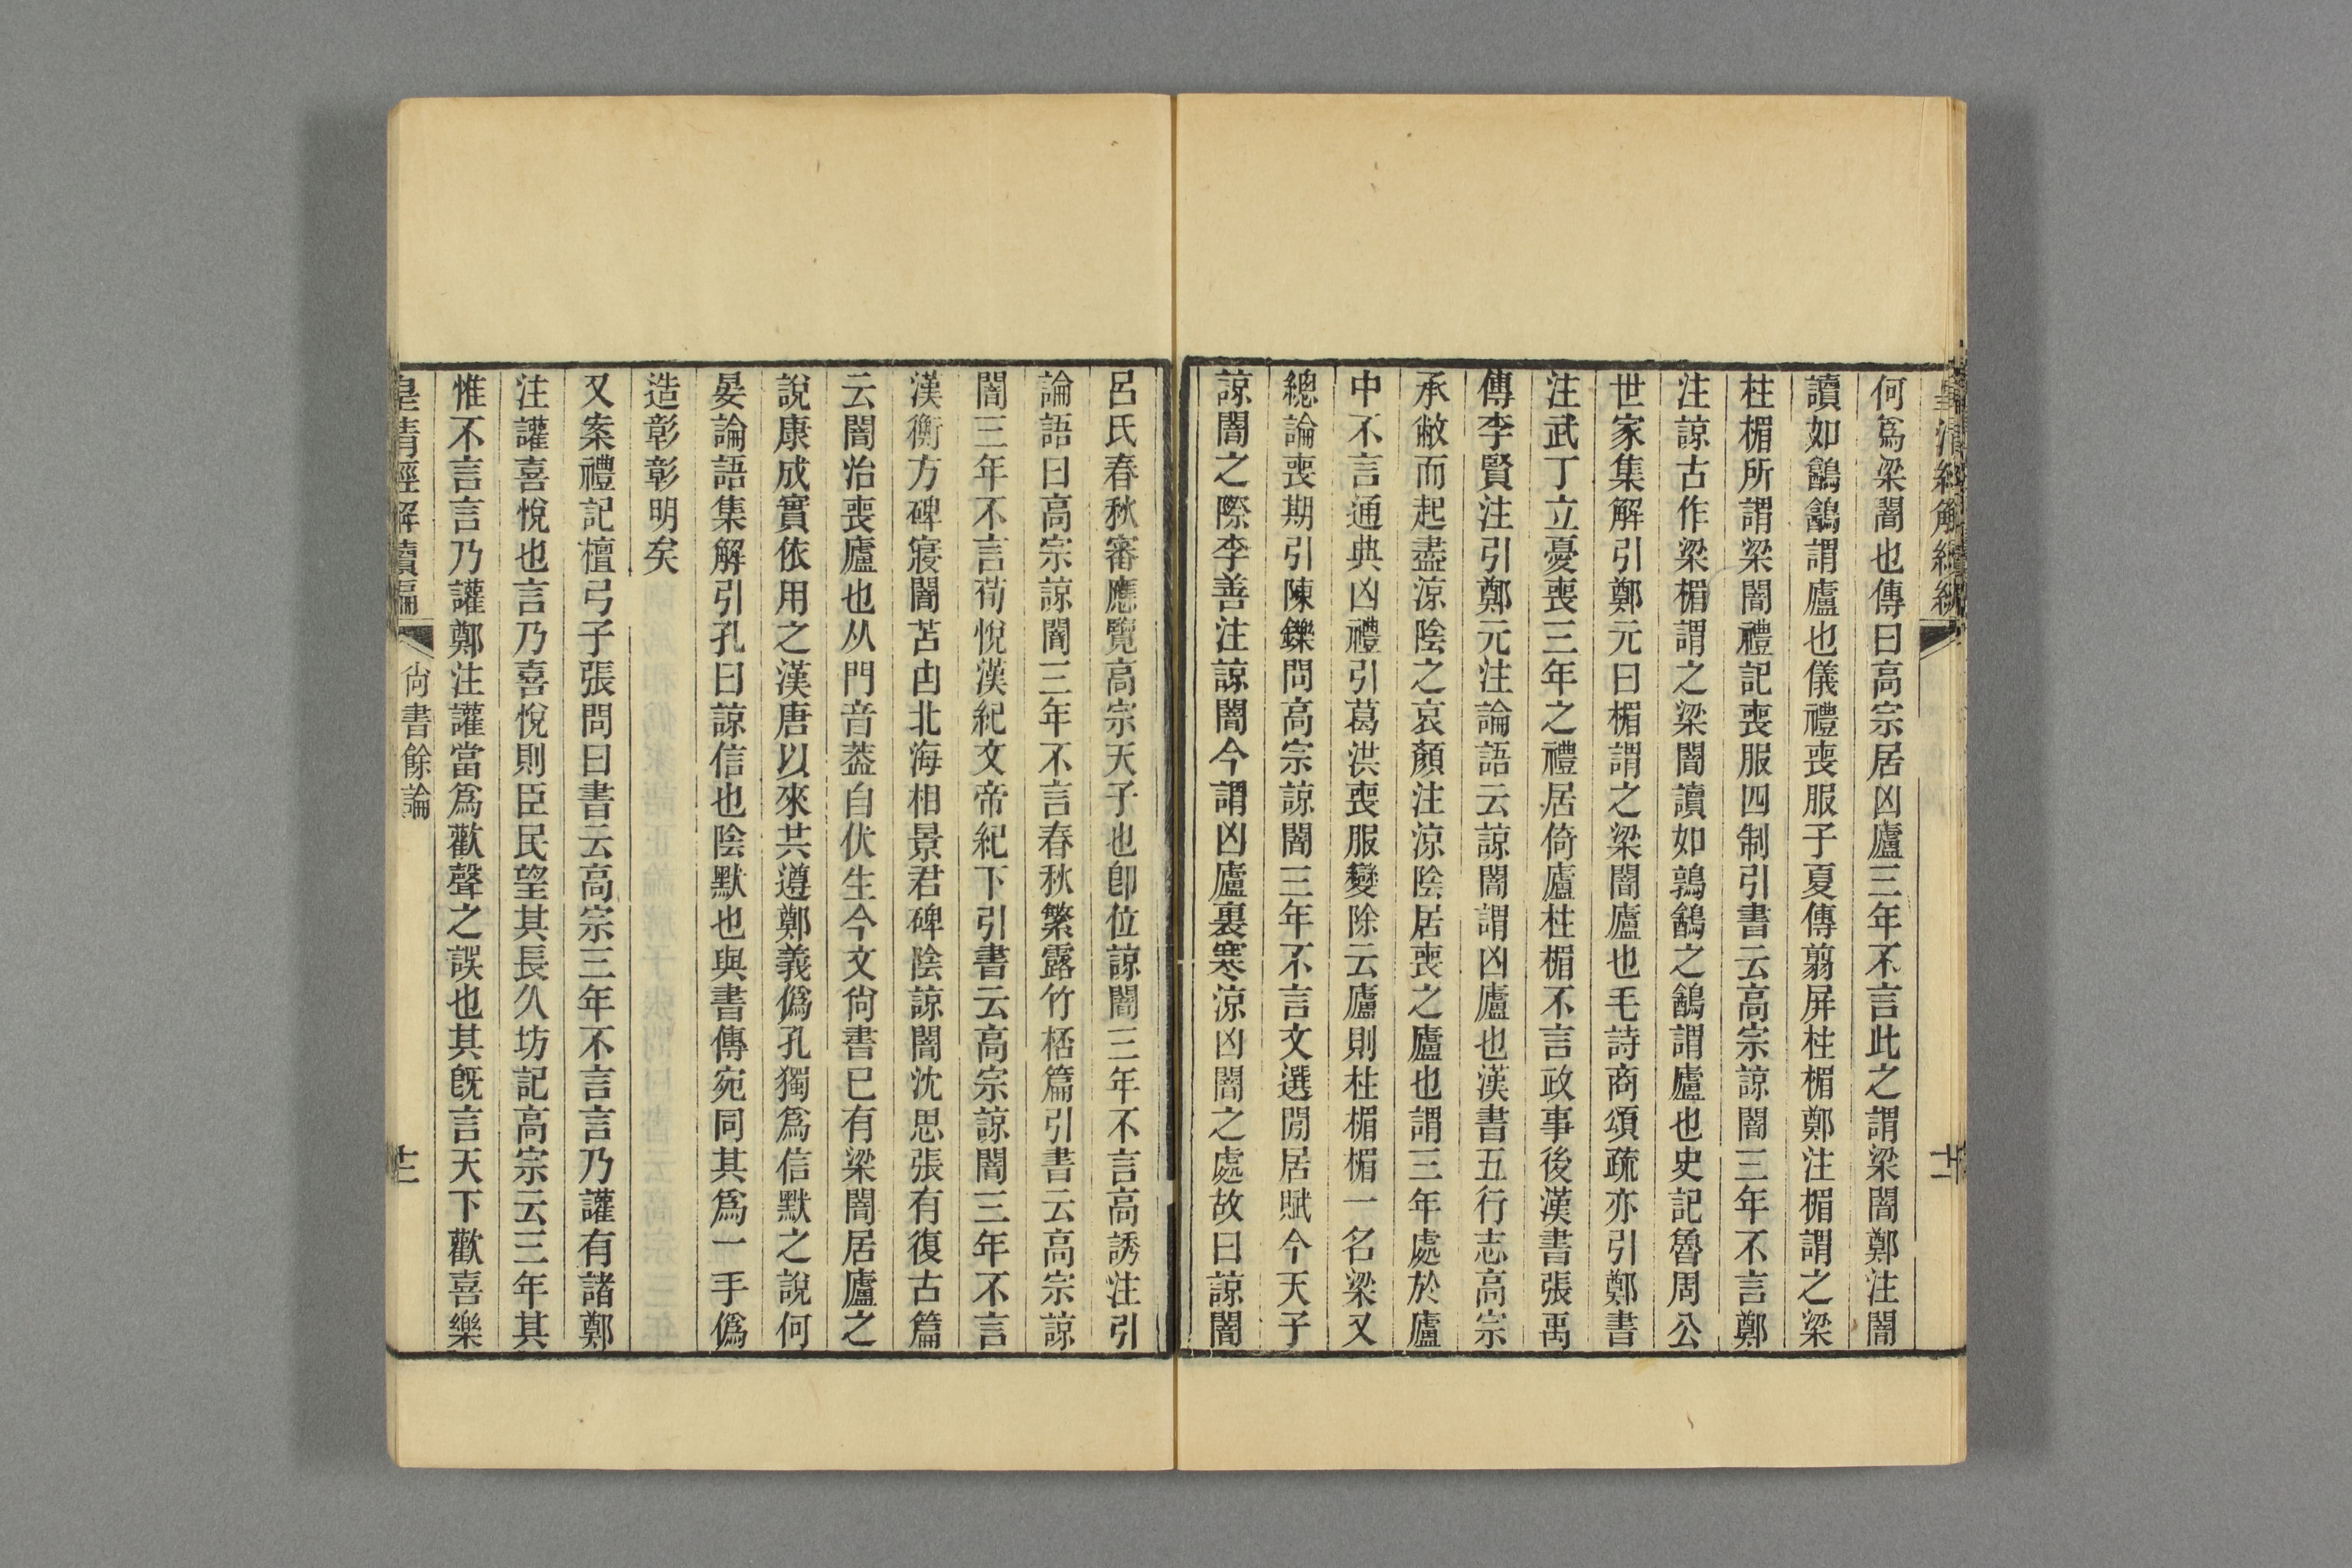 何爲梁闇也傳曰高宗居凶廬三年不言此之謂梁闇鄭注闇
讀如鶕鶕謂廬也儀禮喪服子夏傳翦屏柱楣鄭注楣謂之梁
柱楣所謂梁闇禮記喪服四制引書云高宗諒闇三年不言鄭
注諒古作梁楣謂之梁闇讀如鶉鶕之鶕謂廬也史記魯周公
世家集解引鄭元曰楣謂之梁闇廬也毛詩商頌疏亦引鄭書
注武丁立憂喪三年之禮居倚廬柱楣不言政事後漢書張禹
傳李賢注引鄭元注論語云諒闇謂凶廬也漢書五行志高宗
承敝而起盡涼陰之哀顏注涼陰居喪之廬也謂三年處於廬
中不言通典凶禮引葛洪喪服變除云廬則柱楣楣一名梁又
總論喪期引陳鑠問高宗諒闇三年不言文選閒居賦今天子
諒闇之際李善注諒闇今謂凶廬裏寒涼凶闇之處故曰諒闇
呂氏春秋審應覽高宗天子也卽位諒闇三年不言高誘注引
論語曰高宗諒闇三年不言春秋繁露竹林篇引書云高宗諒
闇三年不言荀悅漢紀文帝紀下引書云高宗諒闇三年不言
漢衡方碑寢闇苫凷北海相景君碑陰諒闇沈思張有復古篇
云闇治喪廬也从門音葢自伏生今文尙書已有梁闇居廬之
說康成實依用之漢唐以來共遵鄭義僞孔獨爲信默之說何
晏論語集解引孔曰諒信也陰默也與書傳宛同其爲一手僞
造彰彰明矣
又案禮記檀弓子張問曰書云高宗三年不言言乃讙有諸鄭
注讙喜悅也言乃喜悅則臣民望其長久坊記高宗云三年其
惟不言言乃讙鄭注讙當爲歡聲之誤也其旣言天下歡喜樂
皇清經解續編
尙書餘論
十二